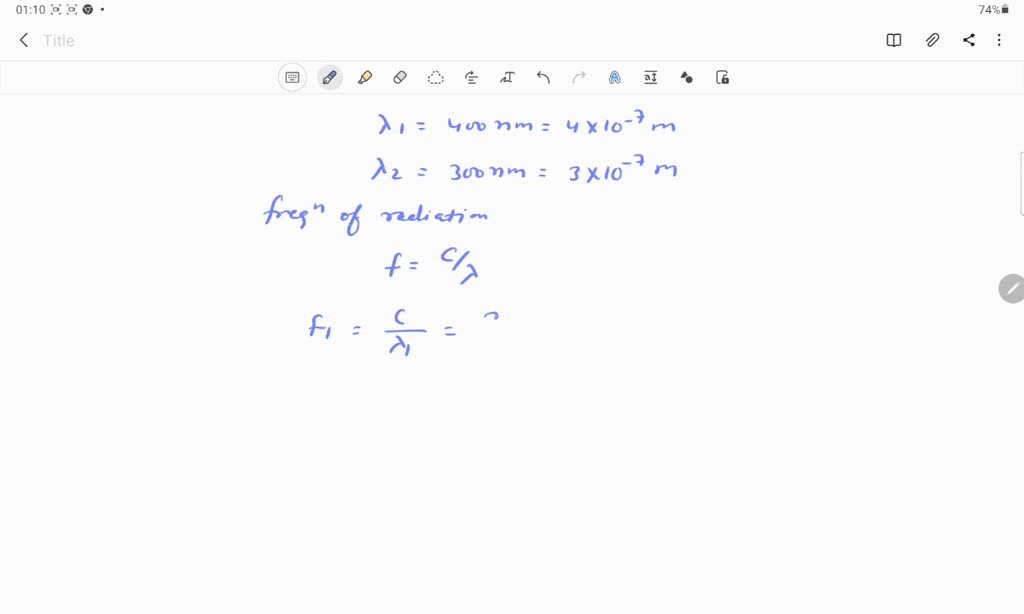 01:10
74%
Title
λ1 = 400 nm = 4 × 10⁻⁷ m
λ2 = 300 nm = 3 × 10⁻⁷ m
freqⁿ of radiation
f = C/λ
f1 = C/λ1 =